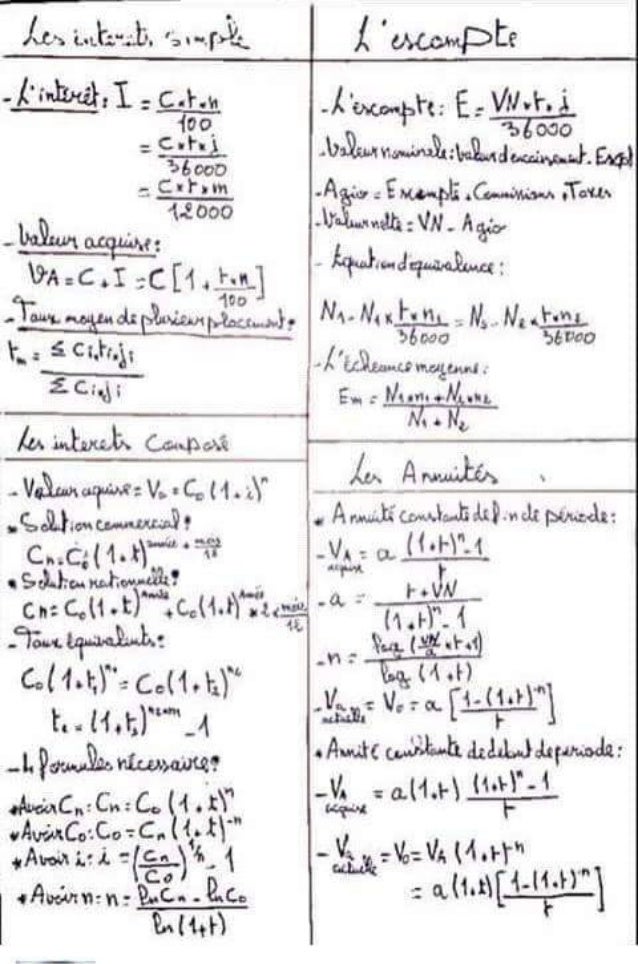 Les interêts simple
- L'intérêt : I = C×t×n / 100
= C×t×j / 36000
= C×t×m / 12000
- Valeur acquise :
VA = C + I = C [1 + t×n / 100]
- Taux moyen de plusieur placement :
tm = Σ Ci×ti×ji / Σ Ci×ji
Les interets Composé
- Valeur aquise = Vo = Co (1+i)^n
• Solution commercial :
Cn = Co (1+t)^(année + mois/12)
• Solution rationnelle :
Cn = Co (1+t)^année + Co (1+t)^année × t × mois/12
- Taux équivalents :
Co (1+t1)^n1 = Co (1+t2)^n2
- 4 formules nécessaires :
* Avoir Cn : Cn = Co (1+t)^n
* Avoir Co : Co = Cn (1+t)^-n
* Avoir i : i = (Cn / Co)^1/n - 1
* Avoir n : n = ln Cn - ln Co / ln (1+t)
L'escompte
- L'éscompte : E = VN×t×j / 36000
- Valeur nominale : valeur d'encaissement
- Agio = Escompte + Commissions + Taxes
- Valeur nette = VN - Agio
- Equation d'equivalence :
N1 - N1 × t×n1 / 36000 = N2 - N2 × t×n2 / 36000
- L'Echeance moyenne :
Em = N1×n1 + N2×n2 / N1 + N2
Les Annuités
• Annuité constante de fin de période :
- VA acquise = a (1+t)^n - 1 / t
- a = t×VN / (1+t)^n - 1
- n = log (VN/a × t + 1) / log (1+t)
- Va actuelle = Vo = a [1 - (1+t)^-n / t]
• Annuité constante de debut de periode :
- VA acquise = a (1+t) (1+t)^n - 1 / t
- Va actuelle = Vo = VA (1+t)^-n
= a (1+t) [1 - (1+t)^-n / t]